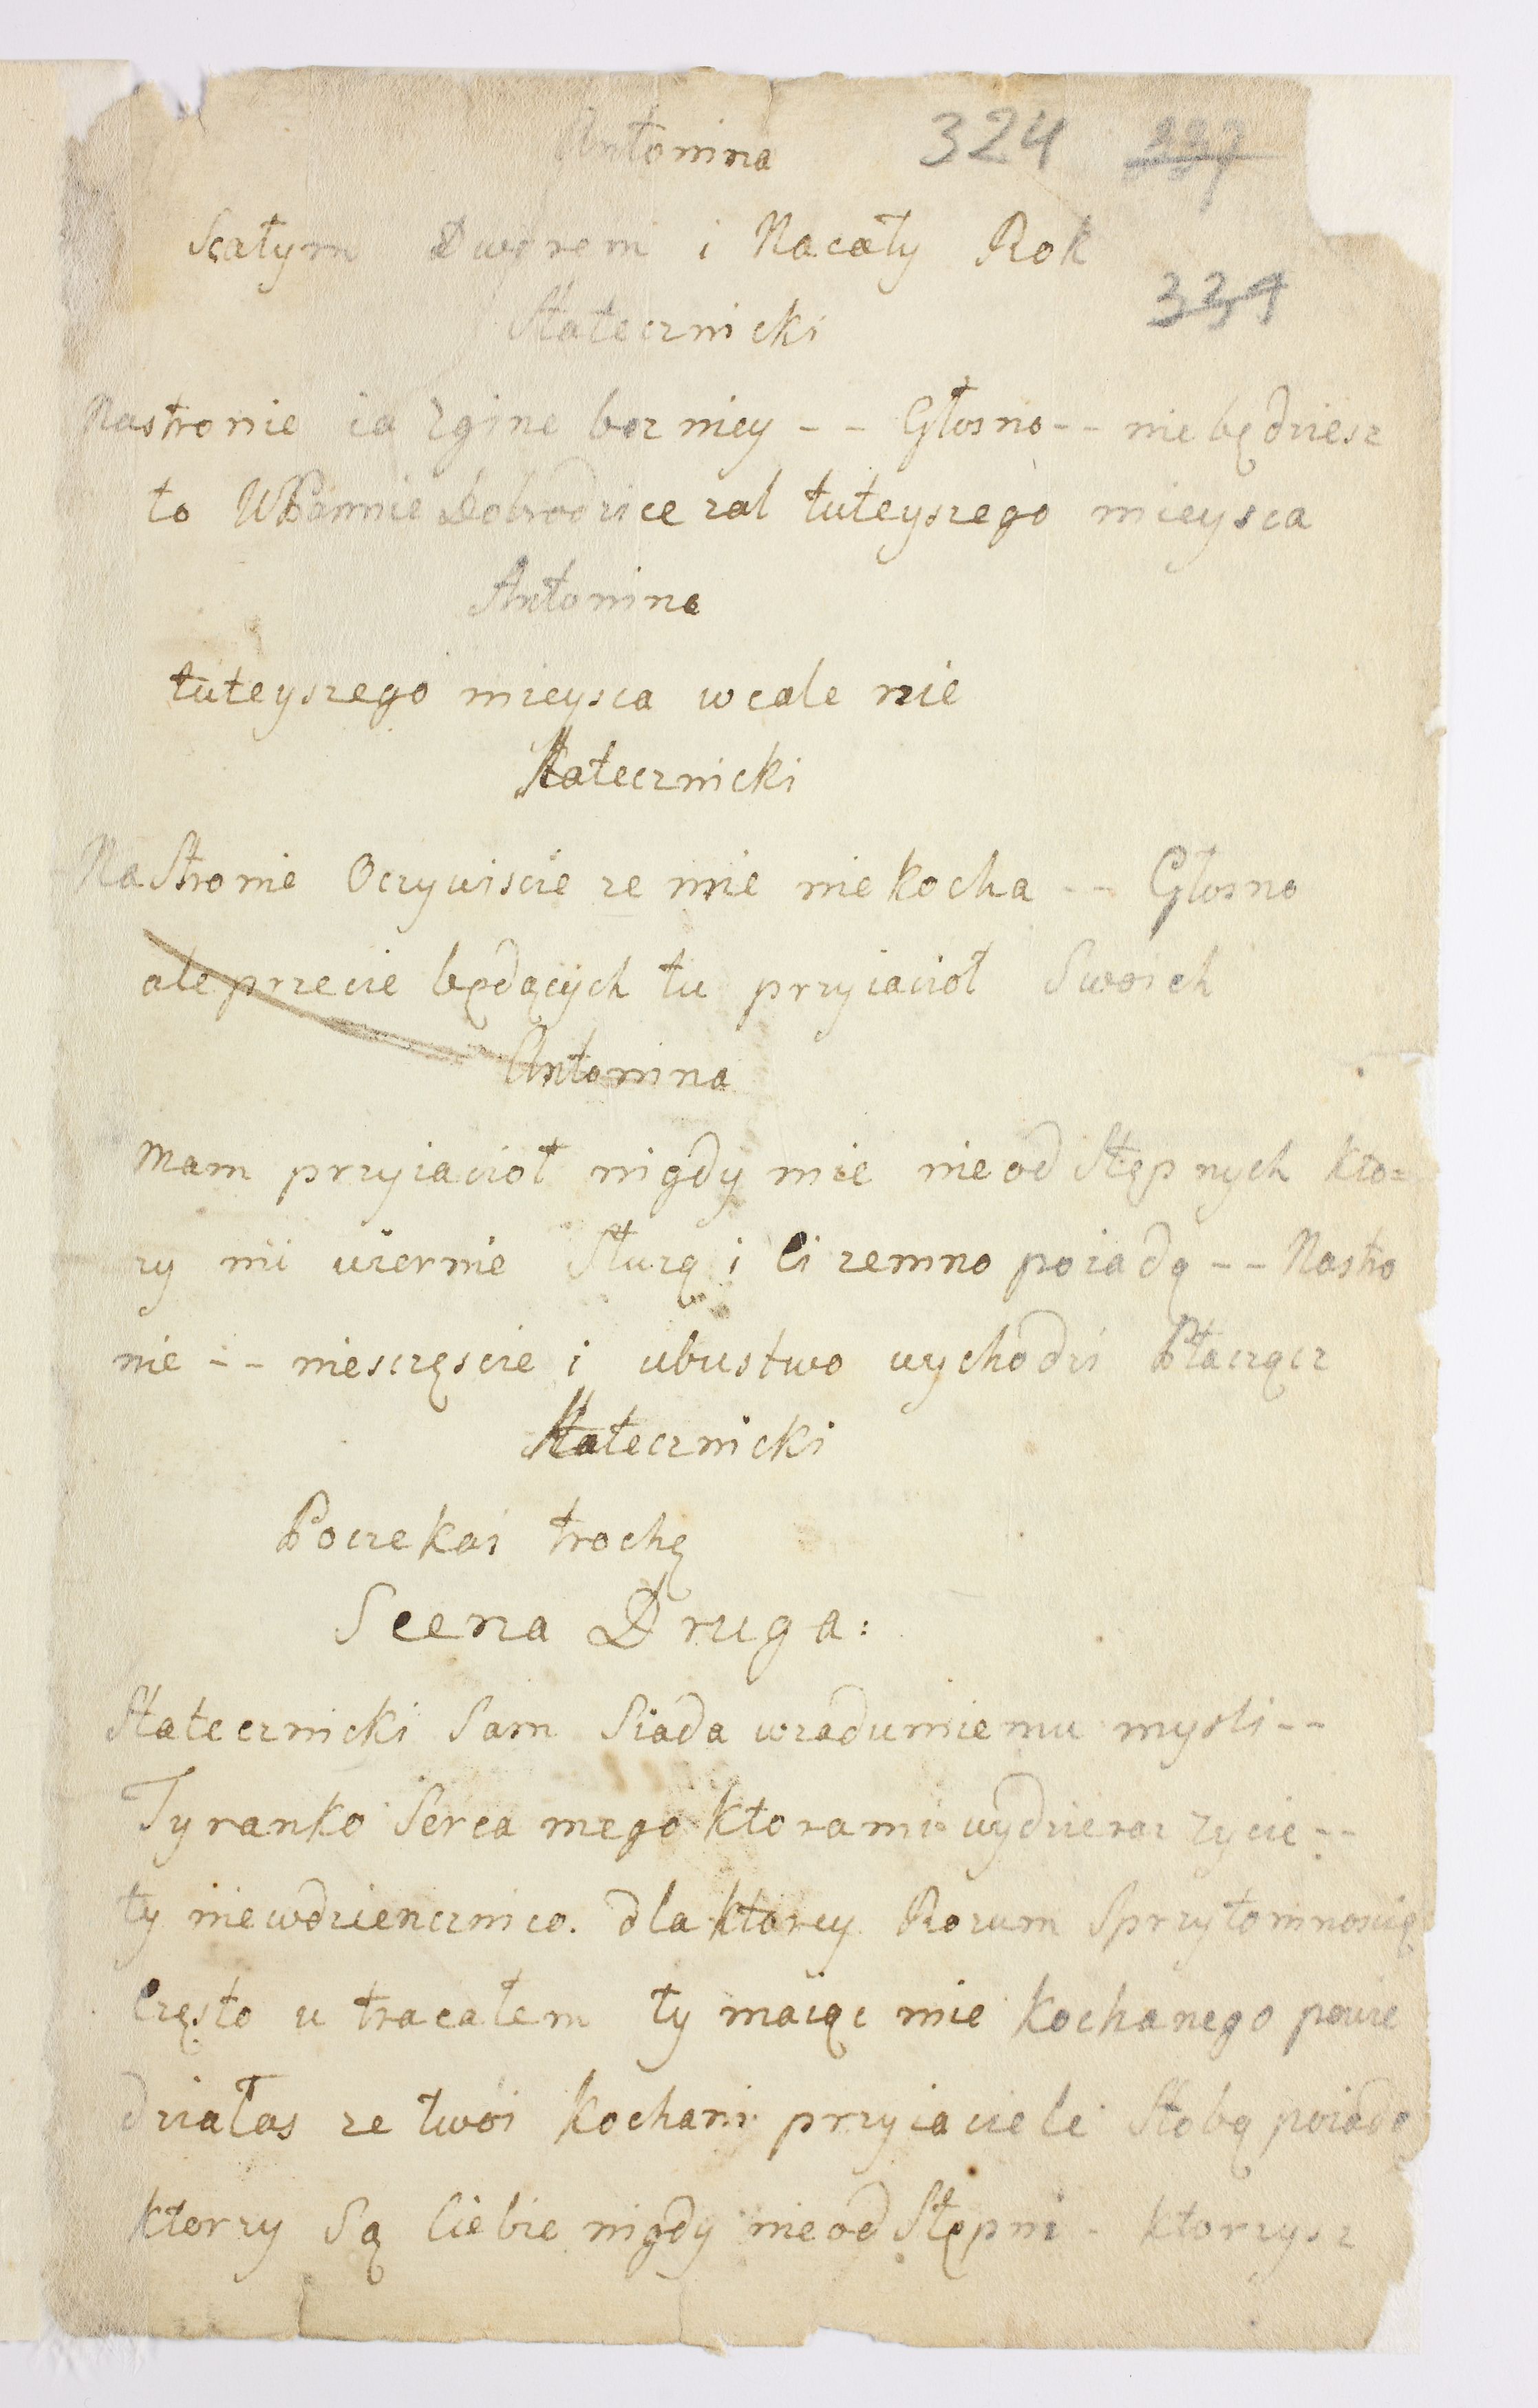 Antonina 324 337
Scałym Dworem i Nacały Rok
334
Statecznicki
Nastronie ia zgine bez niey -- Głosno -- nie będziesz
to WPannie Dobrodzice zal tuteyszego mieysca
Antonina
tuteyszego mieysca wcale nie
Statecznicki
Na Stronie Oczywiscie ze mie nie kocha -- Głosno
ale przecie będących tu przyiacioł Swoich
Antonina
Mam przyiacioł nigdy mie nie od Stępnych kto=
rzy mi wiernie Sturzą i Ci zemno poiadą -- Nastro
nie -- niesczęscie i ubustwo wychodzi Płacząc
Statecznicki
Poczekai trochę
Scena Druga:
Statecznicki Sam Siada wzadumiemu mysli --
Tyranko Serca mego ktorami wydzierasz zycie --
ty niewdziencznico. dla ktorey Rozum Sprzytomnoscią
Często u tracałem ty maiąc mie kochanego powie
działas ze twoi kochani przyiaciele Stobą poiado
ktorzy Są Ciebie nigdy nie od Stępni - ktorzysz